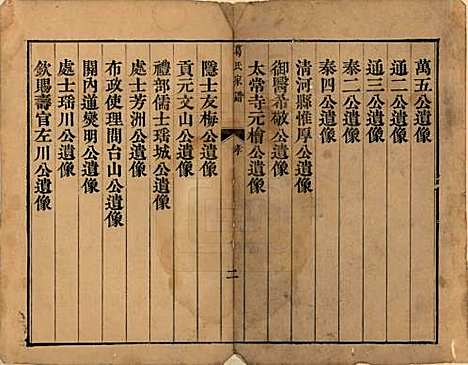 萬五公遺像
通二公遺像
通三公遺像
泰二公遺像
泰四公遺像
清河縣惟厚公遺像
御醫希敬公遺像
太常寺元檜公遺像
葛氏家譜
二
隱士友梅公遺像
貢元文山公遺像
禮部儒士瑤城公遺像
處士芳洲公遺像
布政使理問台山公遺像
關內道爕明公遺像
處士璠川公遺像
欽賜壽官左川公遺像